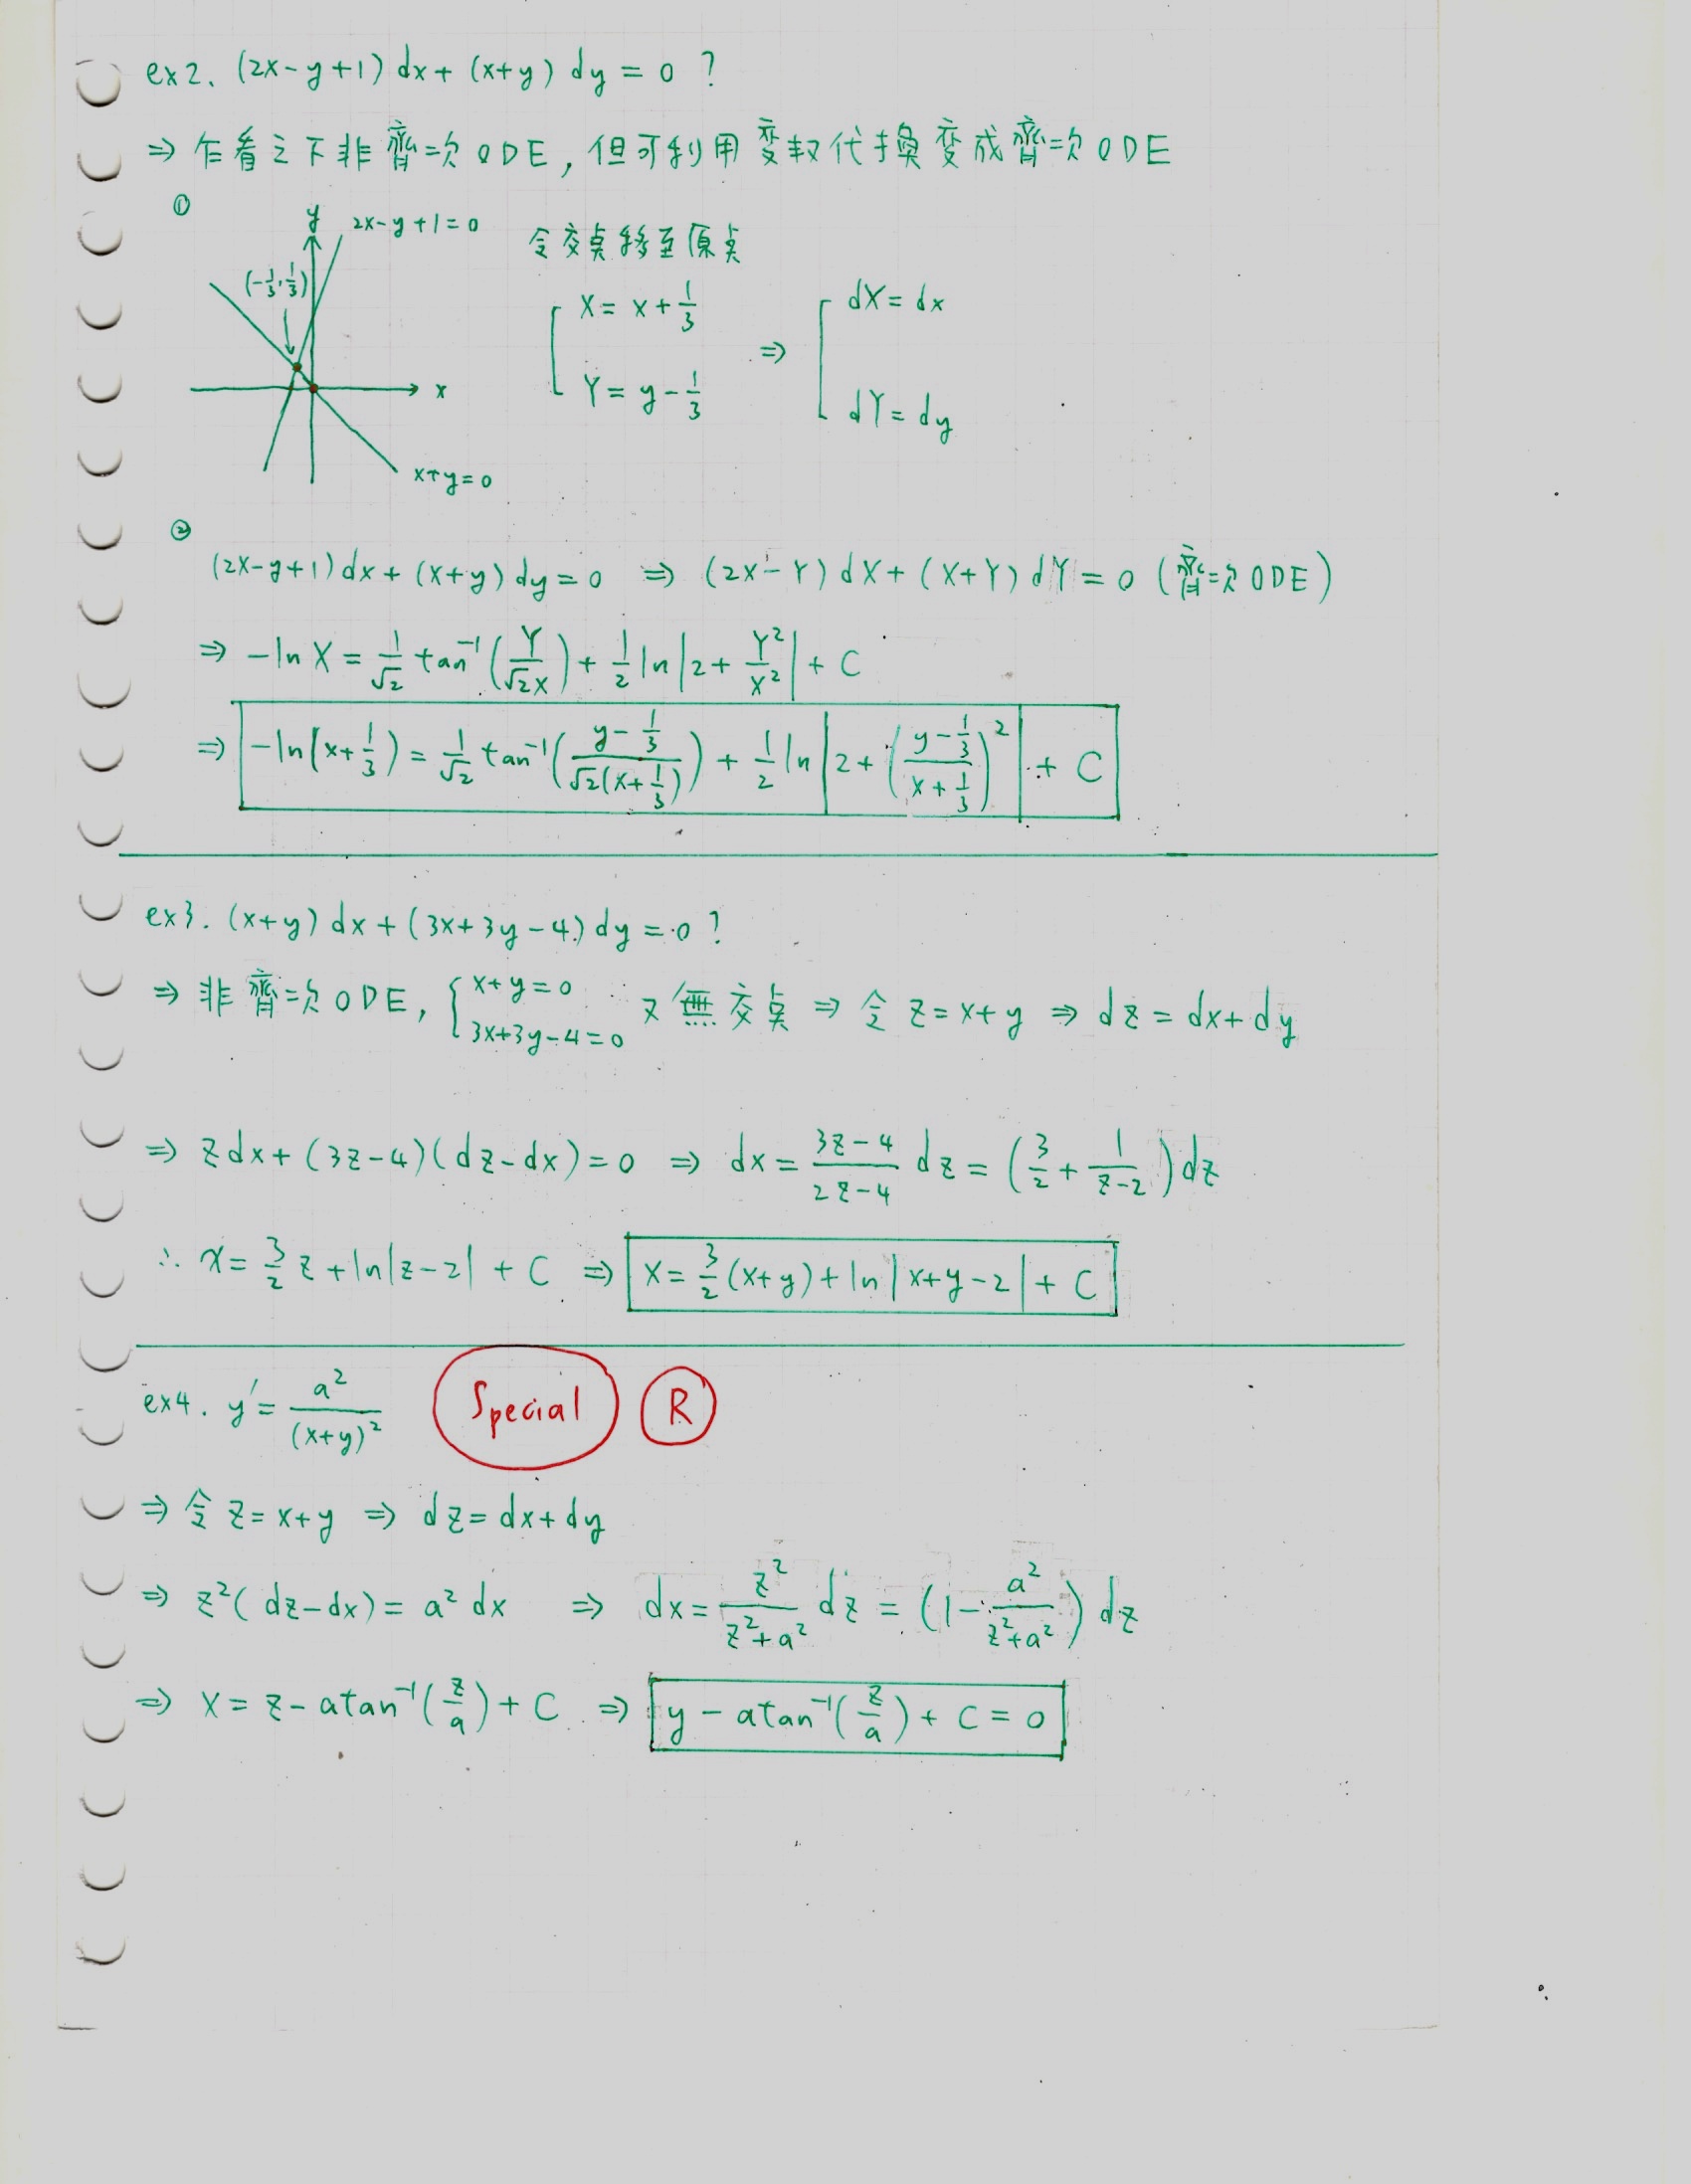 ex2. (2x-y+1) dx + (x+y) dy = 0 ?
⇒ 乍看之下非齊次ODE, 但可利用变数代換变成齊次ODE
①
y 2x-y+1=0 令交点移至原点
(-1/3, 1/3) X = x + 1/3 dX = dx
⇒
x Y = y - 1/3 dY = dy
x+y=0
②
(2x-y+1) dx + (x+y) dy = 0 ⇒ (2X-Y) dX + (X+Y) dY = 0 (齊次ODE)
⇒ -ln X = 1/√2 tan⁻¹(Y/√2X) + 1/2 ln|2 + Y²/X²| + C
⇒ -ln(x+1/3) = 1/√2 tan⁻¹((y-1/3)/(√2(x+1/3))) + 1/2 ln|2 + ((y-1/3)/(x+1/3))²| + C
ex3. (x+y) dx + (3x+3y-4) dy = 0 ?
⇒ 非齊次ODE, { x+y=0 3x+3y-4=0 又無交点 ⇒ 令 z=x+y ⇒ dz = dx+dy
⇒ zdx + (3z-4)(dz-dx) = 0 ⇒ dx = (3z-4)/(2z-4) dz = (3/2 + 1/(z-2)) dz
∴ x = 3/2 z + ln|z-2| + C ⇒ x = 3/2 (x+y) + ln|x+y-2| + C
ex4. y' = a²/(x+y)² Special R
⇒ 令 z=x+y ⇒ dz = dx+dy
⇒ z²(dz-dx) = a² dx ⇒ dx = z²/(z²+a²) dz = (1 - a²/(z²+a²)) dz
⇒ x = z - atan⁻¹(z/a) + C ⇒ y - atan⁻¹(z/a) + C = 0